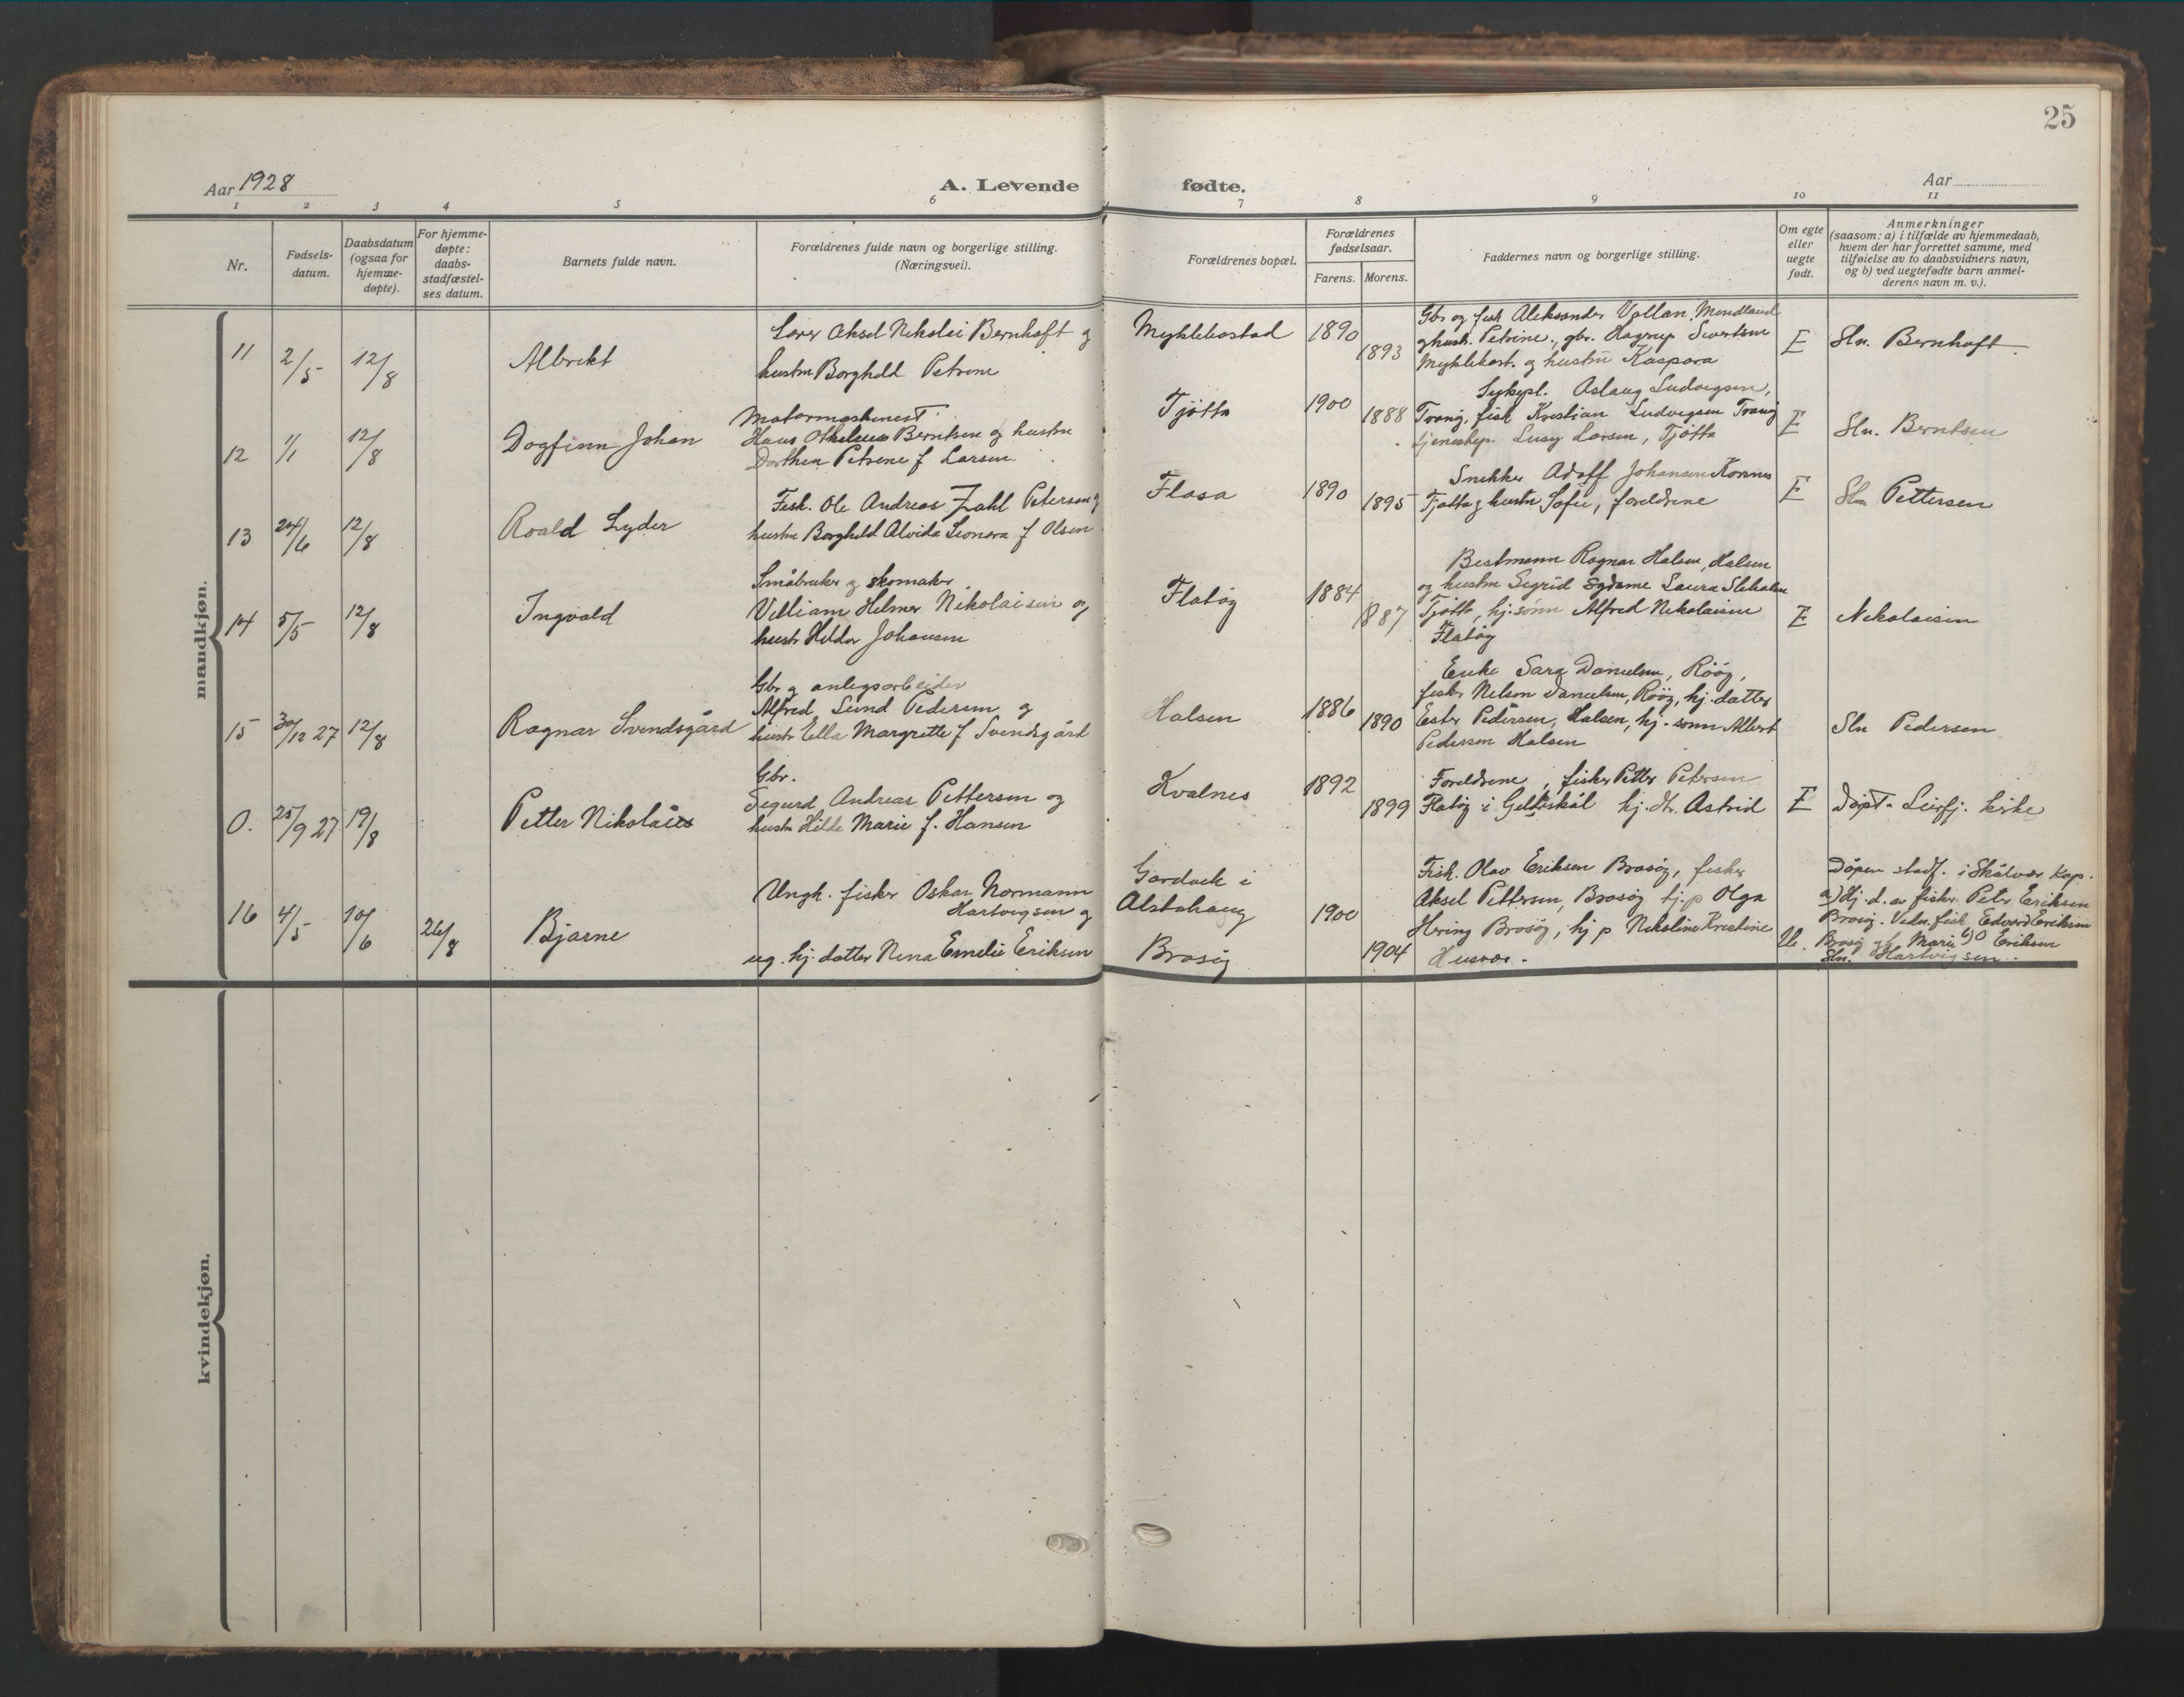 25
Aar 1928
A. Levende
fødte.
Aar
1 2 3 4 5 6 7 8 9 10 11
Nr.
Fødsels-
datum.
Daabsdatum
(ogsaa for
hjemme-
døpte).
For hjemme-
døpte:
daabs-
stadfæstel-
ses datum.
Barnets fulde navn.
Forældrenes fulde navn og borgerlige stilling.
(Næringsvei).
Forældrenes bopæl.
Forældrenes
fødselsaar.
Farens. Morens.
Faddernes navn og borgerlige stilling.
Om egte
eller
uegte
født.
Anmerkninger
(saasom: a) i tilfælde av hjemmedaab,
hvem der har forrettet samme, med
tilføielse av to daabsvidners navn,
og b) ved uegtefødte barn anmel-
derens navn m. v.).
mandkjøn.
11 2/5 12/8 Albrikt
Lærer Aksel Nikolai Bernhoft og
hustru Borghild Petrine
Myklebostad 1890 1893
Gbr og fisk Aleksander Vollan, Mindland
og hustr. Petrine, gbr. Hagrup Sivertsen
Myklebost. og hustru Kaspara
E Sln. Bernhoft
12 1/1 12/8 Dagfinn Johan
Motormaskinest
Hans Othelius Berntsen og hustru
Dorthea Petrine f Larsen.
Tjøtta 1900 1888
Sykepl. Aslaug Ludvigsen,
Tranøj, fisk Kristian Ludvigsen Tranøj
tjenestep. Lucy Larsen, Tjøtta
E Sln. Berntsen
13 24/6 12/8 Roald Lyder
Fisk. Ole Andreas Zahl Petersen og
hustru Borghild Alvida Leonora f Olsen
Flosa 1890 1895
Snekker Adolf Johansen
Tjøtta og hustru Sofie, foreldrene
E Sln Pettersen
14 5/5 12/8 Ingvald
Småbruker og skomaker
Villiam Helmer Nikolaisen og
hustr Hilda Johansen
Flatøy 1884 1887
Bestmann Ragnar Halsen, Halsen
og hustru Sigrid Laura
Tjøtta, hj. sønn Alfred Nikolaisen
Flatøy
E Nikolaisen
15 30/12 27 12/8 Ragnar Svendsgård
Gbr og anlegsarbeider
Alfred Lund Pedersen og
hustr Ella Margrette f Svendsgård
Halsen 1886 1890
Enke Sara Danielsen, Røøy,
fisker Nelson Danielsen, Røøy, hj. datter
Ester Pedersen, Halsen, hj. sønn Albert
Pedersen Halsen
Sln Pedersen
0. 25/9 27 19/8 Petter Nikolais
Gbr.
Sigurd Andreas Pettersen og
hustr Hilda Marie f. Hansen
Kvalnes 1892 1899
Foreldrene, fisker Petter Petersen
Flatøy i Gildeskål hj. dtr. Astrid
E Døpt. Leirfj. kirke
16 4/5 10/6 26/8 Bjarne
Ungk. fisker Oskar Normann
Hartvigsen og
ug. hj. datter Nina Emelie Eriksen
i
Alstahaug
Brasøy
1900 1904
Fisk. Olav Eriksen Brasøy, fisker
Aksel Pettersen, Brasøy tj. p Olga
Hering Brasøy, hj p Nikoline Kristine
Husvær.
Ue.
Dåpen stadf. i Skålvær Kap.
a) Hj. d. av fisker Peter Eriksen
Brasøy. Vidn. fisk Edvard Eriksen
Brasøy og Marie O Eriksen
b) Sln. Hartvigsen.
kvindekjøn.